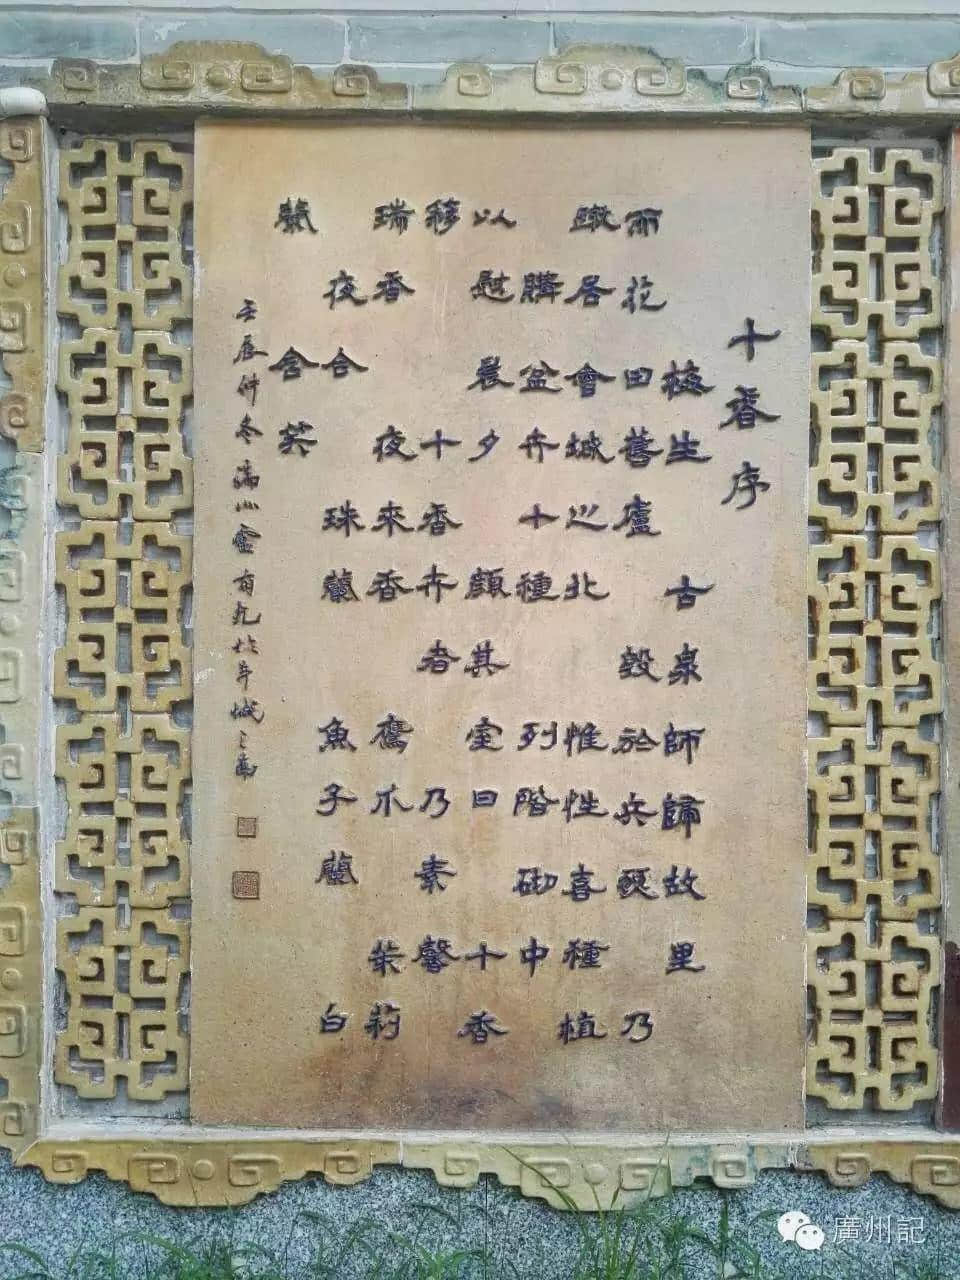 十香序
生 古泉師歸故里
而花田舊廬 毀於兵燹 乃
居會城之北 惟性喜種植
購盆卉十種 列階砌中
以慰晨夕 顏其室曰十香
簃 十香卉者 乃素馨
瑞香 夜來香 鷹爪 茉莉
夜合 珠蘭 魚子蘭 白
蘭 含笑
壬辰仲冬 於羊城之南
廣州記